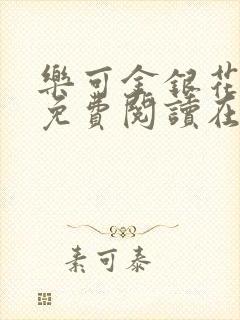 樂可金銀花
免費閱讀在
素可泰